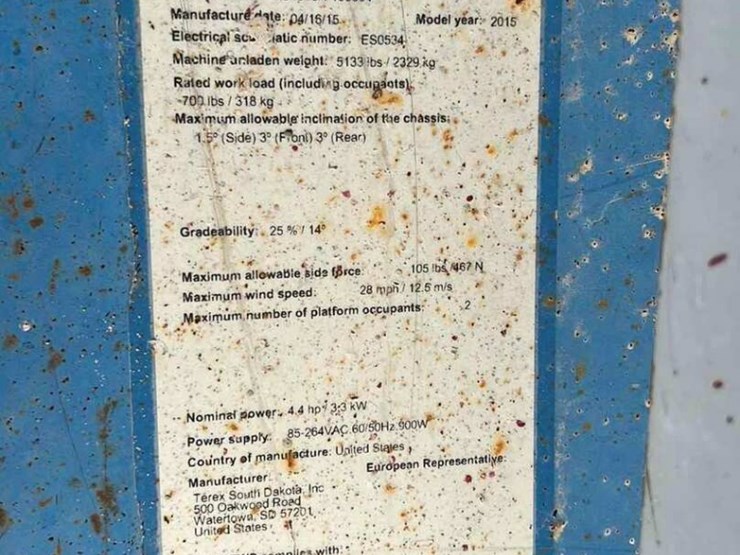 Manufacture date: 04/16/15 Model year: 2015
Electrical number: ES0534
Machine unladen weight: 5133 lbs / 2329 kg
Rated work load (including occupants):
700 lbs / 318 kg
Maximum allowable inclination of the chassis:
1.5° (Side) 3° (Front) 3° (Rear)
Gradeability: 25 % / 14°
Maximum allowable side force: 105 lbs /467 N
Maximum wind speed: 28 mph / 12.5 m/s
Maximum number of platform occupants: 2
Nominal power: 4.4 hp / 3.3 kW
Power supply: 85-264VAC 60/50Hz 900W
Country of manufacture: United States
European Representative:
Manufacturer:
Terex South Dakota, Inc
500 Oakwood Road
Watertown, SD 57201
United States
complies with: